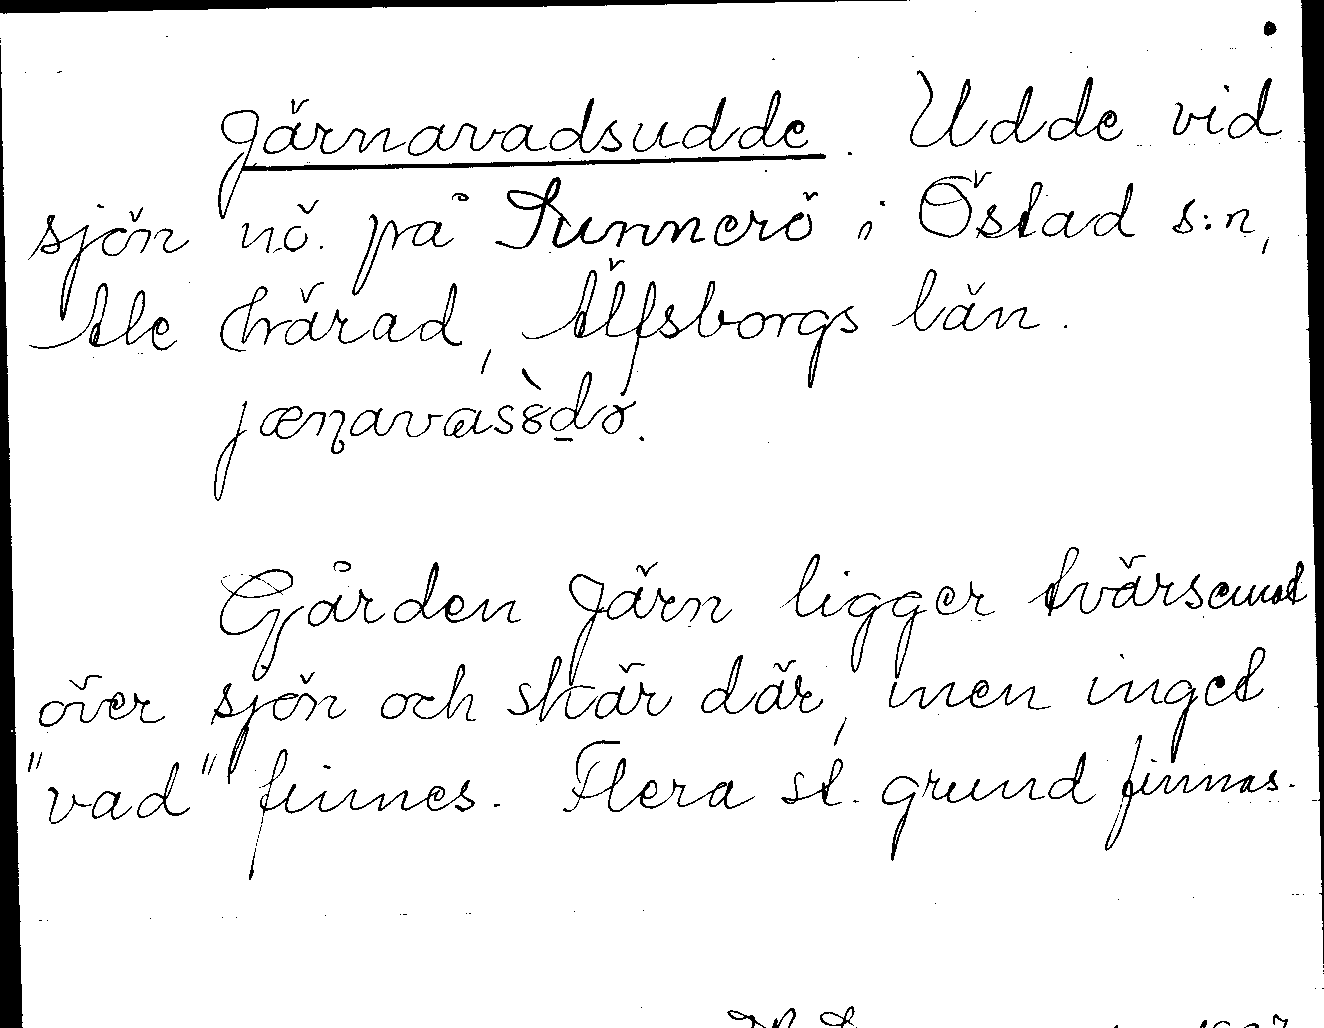 Järnavadsudde. Udde vid
sjön nö. på Sunnerö i Östad s:n,
Ale härad, Älfsborgs län.
Gården Järn ligger tvärsemot
över sjön och skär där, men inget
"vad" finnes. Flera st. grund finnas.